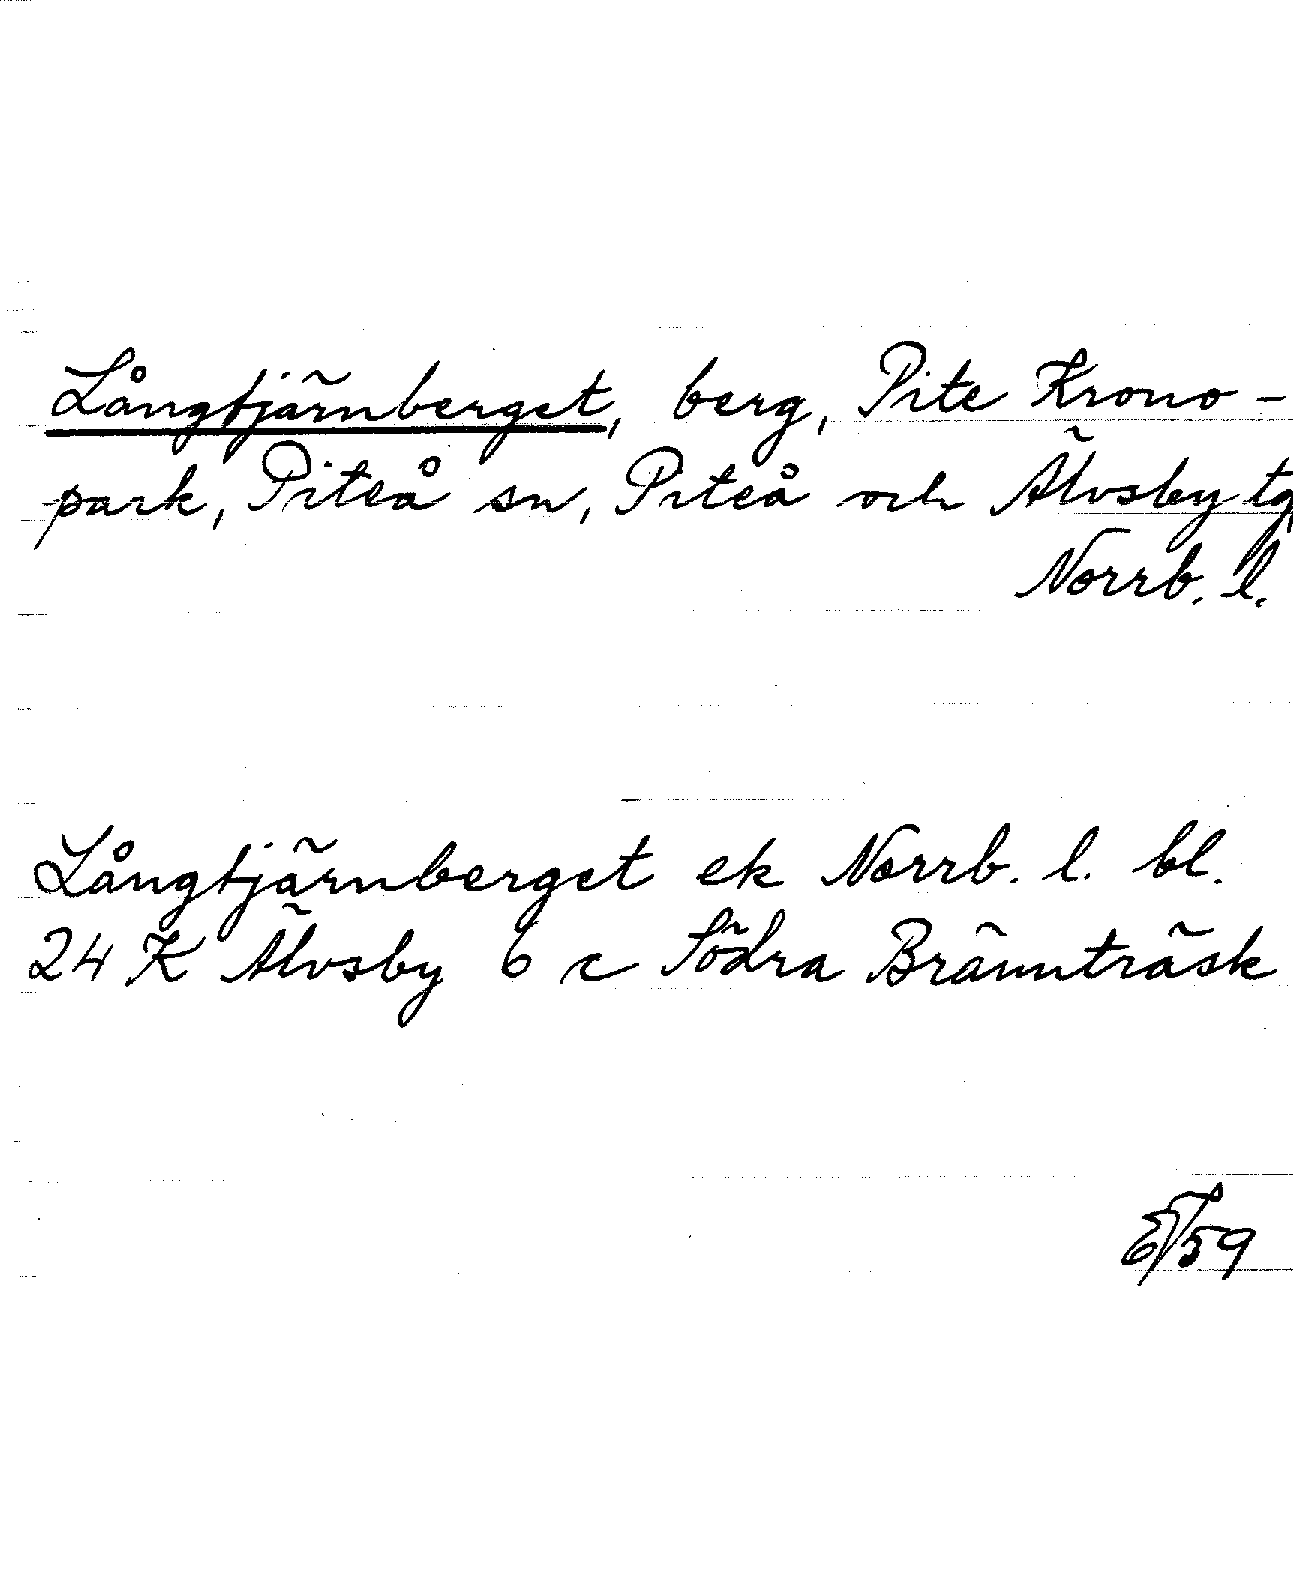 Långtjärnberget, berg, Pite Krono-
park, Piteå sn, Piteå och Älvsby tg,
Norrb. l.
Långtjärnberget ek Norrb. l. bl.
24 K Älvsby 6 c Södra Brännträsk
/59